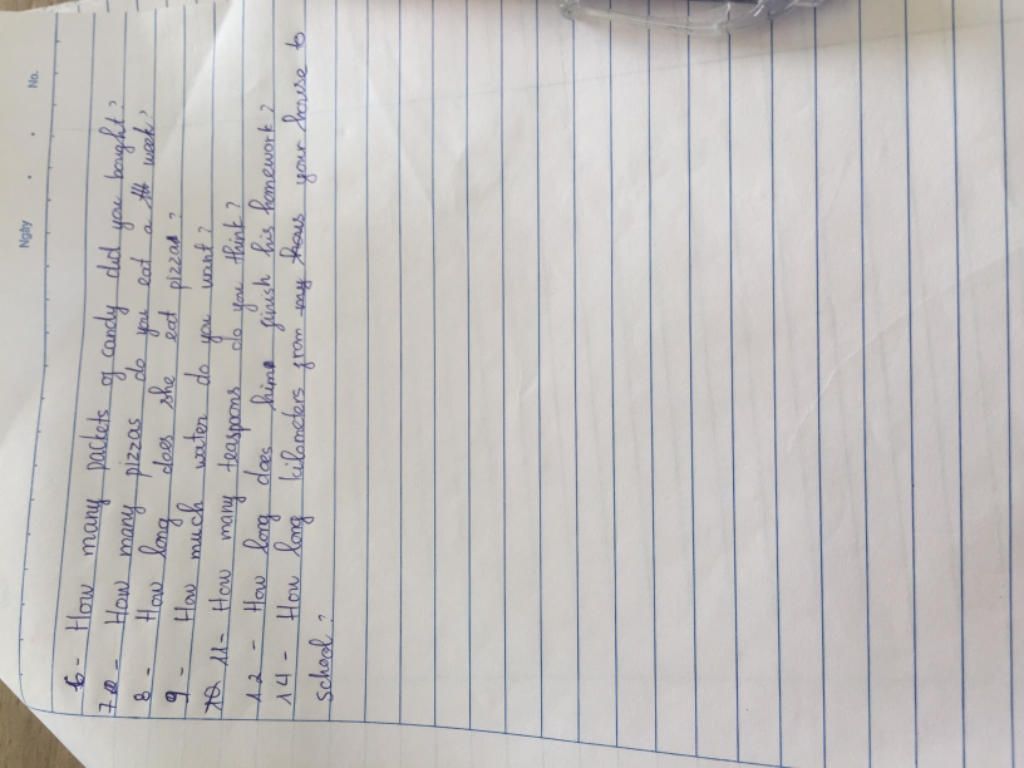 Ngày . . No.
6 - How many packets of candy did you bought?
7 - How many pizzas do you eat a week?
8 - How long does she eat pizza?
9 - How much water do you want?
11 - How many teaspoons do you think?
12 - How long does him finish his homework?
14 - How long kilometers from your house to
school?